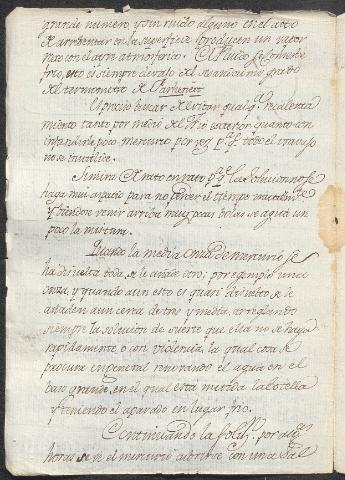 grande numero y sin ruido alguno en el acto
de arrebentar en la superficie producen un vapor
roxo con el ayre atmosferico. El fluido se conserva
frio, esto es siempre devajo del grado
del termometro de
Es preciso cuidar de evitar qualqr. recalenta
miento tanto por medio del frio exterior quanto con
infundirle poco mercurio por vez pa. qe. todo el
no se inutilice.
Se mira el rato en rato pa. qe. la solucion no se
haga mui aspacio para no perder el tiempo inutilmte.
y viendose venir arriba muy pocas bolas se agita un
poco la mixtura.
Quando la media onza de mercurio se
ha disuelto toda, se le añade otra; por exemplo una
onza, y quando aun esto es quasi disuelto se le
añaden aun cerca de tres y media, arreglando
siempre la solucion de suerte que ella no se haga
rapidamente o con violencia, la qual cosa se
procura en general renovando el agua en el
baso grande, en el qual está metida la botella
y teniendo el aparado en lugar frio.
Continuando la soluon. por algs.
horas se ve el mercurio cubrirse con una sal